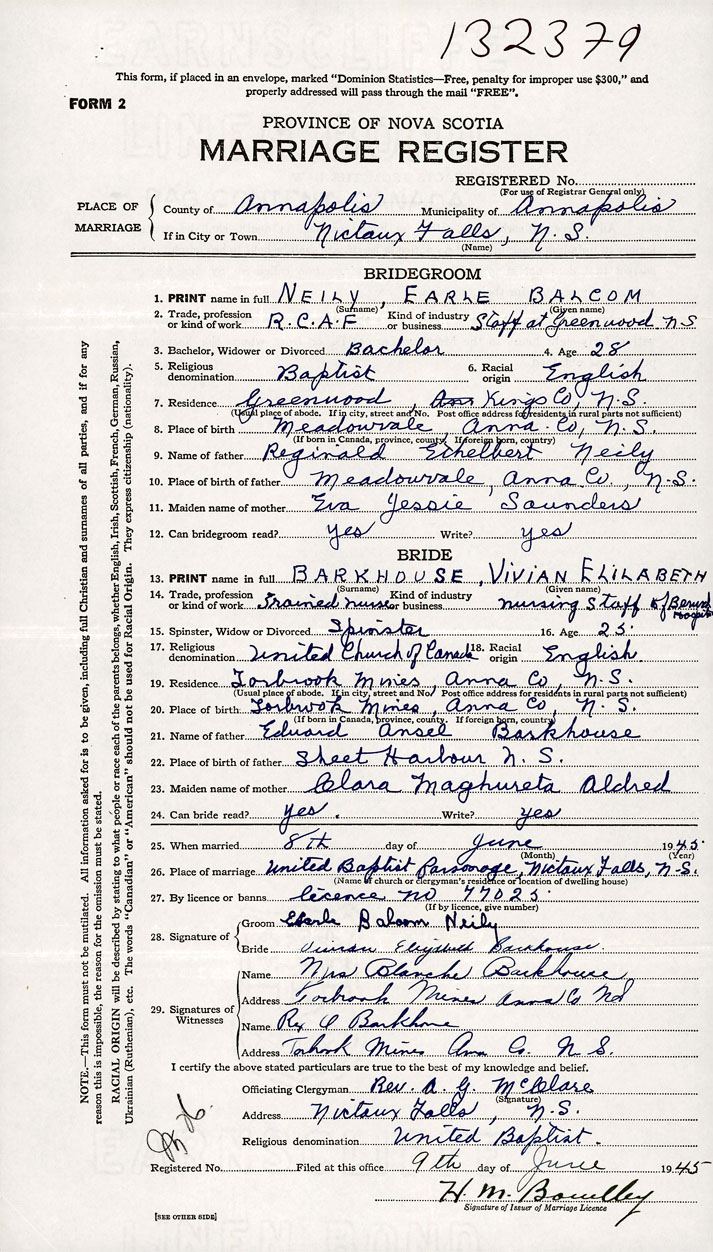 132379
This form, if placed in an envelope, marked "Dominion Statistics—Free, penalty for improper use $300," and
properly addressed will pass through the mail "FREE".
FORM 2
PROVINCE OF NOVA SCOTIA
MARRIAGE REGISTER
REGISTERED No.
(For use of Registrar General only)
PLACE OF MARRIAGE
County of Annapolis Municipality of Annapolis
If in City or Town Nictaux Falls, N.S.
(Name)
BRIDEGROOM
1. PRINT name in full NEILY, EARLE BALCOM
(Surname) (Given name)
2. Trade, profession or kind of work R.C.A.F Kind of industry or business Staff at Greenwood N S
3. Bachelor, Widower or Divorced Bachelor 4. Age 28
5. Religious denomination Baptist 6. Racial origin English
7. Residence Greenwood, Kings Co, N.S.
(Usual place of abode. If in city, street and No. Post office address for residents in rural parts not sufficient)
8. Place of birth Meadowvale, Anna. Co, N.S.
(If born in Canada, province, county. If foreign born, country)
9. Name of father Reginald Ethelbert Neily
10. Place of birth of father Meadowvale, Anna Co., N.S.
11. Maiden name of mother Eva Jessie Saunders
12. Can bridegroom read? yes Write? yes
BRIDE
13. PRINT name in full BARKHOUSE, VIVIAN ELIZABETH
(Surname) (Given name)
14. Trade, profession or kind of work Trained nurse Kind of industry or business nursing staff of
15. Spinster, Widow or Divorced Spinster 16. Age 25
17. Religious denomination United Church of Canada 18. Racial origin English
19. Residence Torbrook Mines, Anna Co, N.S.
(Usual place of abode. If in city, street and No. Post office address for residents in rural parts not sufficient)
20. Place of birth Torbrook Mines, Anna Co, N.S.
(If born in Canada, province, county. If foreign born, country)
21. Name of father Edward Ansel Barkhouse
22. Place of birth of father Sheet Harbour N. S.
23. Maiden name of mother Clara Maghureta Aldred
24. Can bride read? yes. Write? yes
25. When married 8th day of June 1945
(Month) (Year)
26. Place of marriage United Baptist Parsonage, Nictaux Falls, N.S.
(Name of church or clergyman's residence or location of dwelling house)
27. By licence or banns licence no 77025
(If by licence, give number)
28. Signature of
Groom Balcom Neily
Bride Vivian Elizabeth Barkhouse.
29. Signatures of Witnesses
Name Mrs Blanche Barkhouse
Address Torbrook Mines Anna Co
Name Barkhouse
Address Torbrook Mines Ann Co. N. S.
I certify the above stated particulars are true to the best of my knowledge and belief.
Officiating Clergyman Rev. A. G. McClare
(Signature)
Address Nictaux Falls, N.S.
Religious denomination United Baptist.
Registered No. Filed at this office 9th day of June 1945
H. M.
Signature of Issuer of Marriage Licence
[SEE OTHER SIDE]
NOTE.—This form must not be mutilated. All information asked for is to be given, including full Christian and surnames of all parties, and if for any
reason this is impossible, the reason for the omission must be stated.
RACIAL ORIGIN will be described by stating to what people or race each of the parents belongs, whether English, Irish, Scottish, French, German, Russian,
Ukrainian (Ruthenian), etc. The words "Canadian" or "American" should not be used for Racial Origin. They express citizenship (nationality).